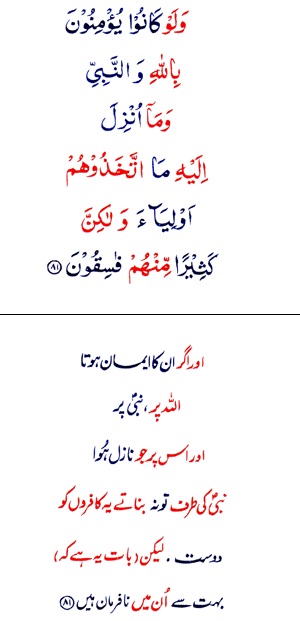 وَلَوْ كَانُوْا يُؤْمِنُوْنَ
بِاللّٰهِ وَ النَّبِيِّ
وَمَاۤ اُنْزِلَ
اِلَيْهِ مَا اتَّخَذُوْهُمْ
اَوْلِيَآءَ وَ لٰكِنَّ
كَثِيْرًا مِّنْهُمْ فٰسِقُوْنَ ﴿۸۱﴾
اور اگر ان کا ایمان ہوتا
اللہ پر ، نبیؐ پر
اور اس پر جو نازل ہُوا
نبیؐ کی طرف تو نہ بناتے یہ کافروں کو
دوست . لیکن (بات یہ ہے کہ)
بہت سے اُن میں نافرمان ہیں ﴿۸۱﴾